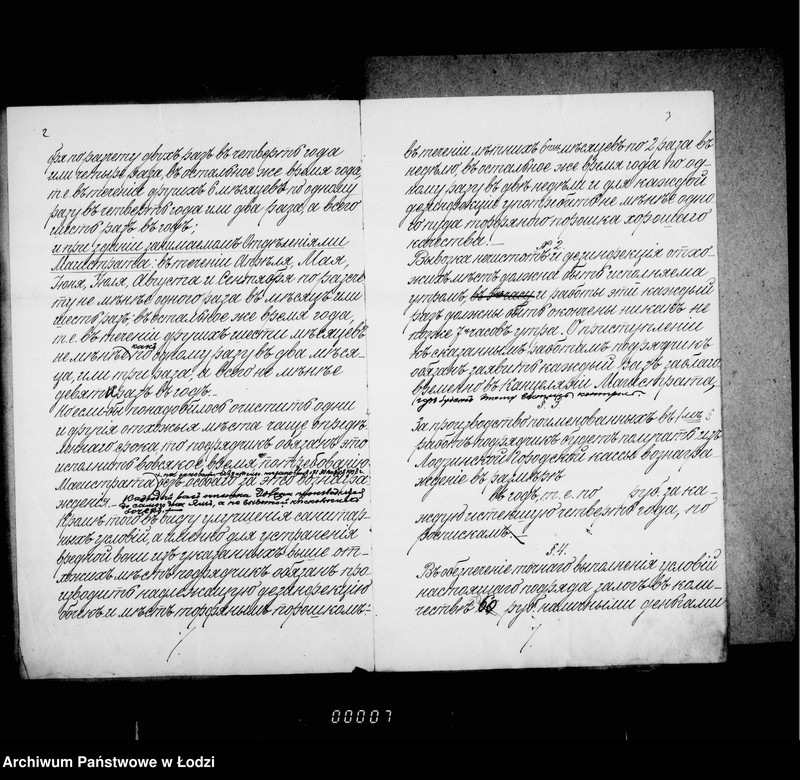 2
по разчету двухъ разъ въ четверть года
или четыре раза, въ остальное же время года,
т. е. въ теченіе другихъ 6 мѣсяцевъ по одному
разу въ четверть года или два раза, а всего
шесть разъ въ годъ;
и при зданіи занимаемомъ Отдѣленіями
Магистрата: въ теченіи Апрѣля, Мая,
Іюня, Іюля, Августа и Сентября по разче-
ту не менѣе одного раза въ мѣсяцъ или
шесть разъ, въ остальное же время года,
т. е. въ теченіи другихъ шести мѣсяцевъ
не менѣе какъ по одному разу въ два мѣся-
ца, или три раза, а всего не менѣе
девяти разъ въ годъ.
Но если бы понадобилось очистить одни
и другія отхожія мѣста чаще опредѣ-
леннаго срока, то подрядчикъ обязанъ это
исполнить во всякое время по требованію
Магистрата безъ особаго за это вознагра-
жденія.
Кромѣ того въ виду улучшенія санитар-
ныхъ условій, а именно для устраненія
вредной вони изъ указанныхъ выше от-
хожихъ мѣстъ подрядчикъ обязанъ про-
изводить надлежащую дезинфекцію
обѣихъ мѣстъ торфянымъ порошкомъ
3
въ теченіи лѣтнихъ 6 мѣсяцевъ по 2 раза въ
недѣлю, въ остальное же время года по од-
ному разу въ двѣ недѣли и для каждой
дезинфекціи употребить не менѣе одно-
го пуда торфяного порошка хорошаго
качества.
№ 2.
Вывозка нечистотъ и дезинфекція отхо-
жихъ мѣстъ должна быть исполняема
утромъ и работы эти каждый
разъ должны быть окончены никакъ не
позже 7 часовъ утра. О приступленіи
къ сказаннымъ работамъ подрядчикъ
обязанъ заявить каждый разъ заблаго-
временно въ Канцелярію Магистрата,
гдѣ будетъ этому контроль.
§. 3.
За производство поименованныхъ въ
работъ подрядчикъ будетъ получать изъ
Лодзинской Городской кассы вознагра-
жденіе въ размѣрѣ
въ годъ, т. е. по руб. за ка-
ждую истекшую четверть года, по
роспискамъ.
§. 4.
Въ обезпеченіе точнаго выполненія условій
настоящаго подряда залогъ въ коли-
чествѣ 60 руб. наличными деньгами
00007
Archiwum Państwowe w Łodzi